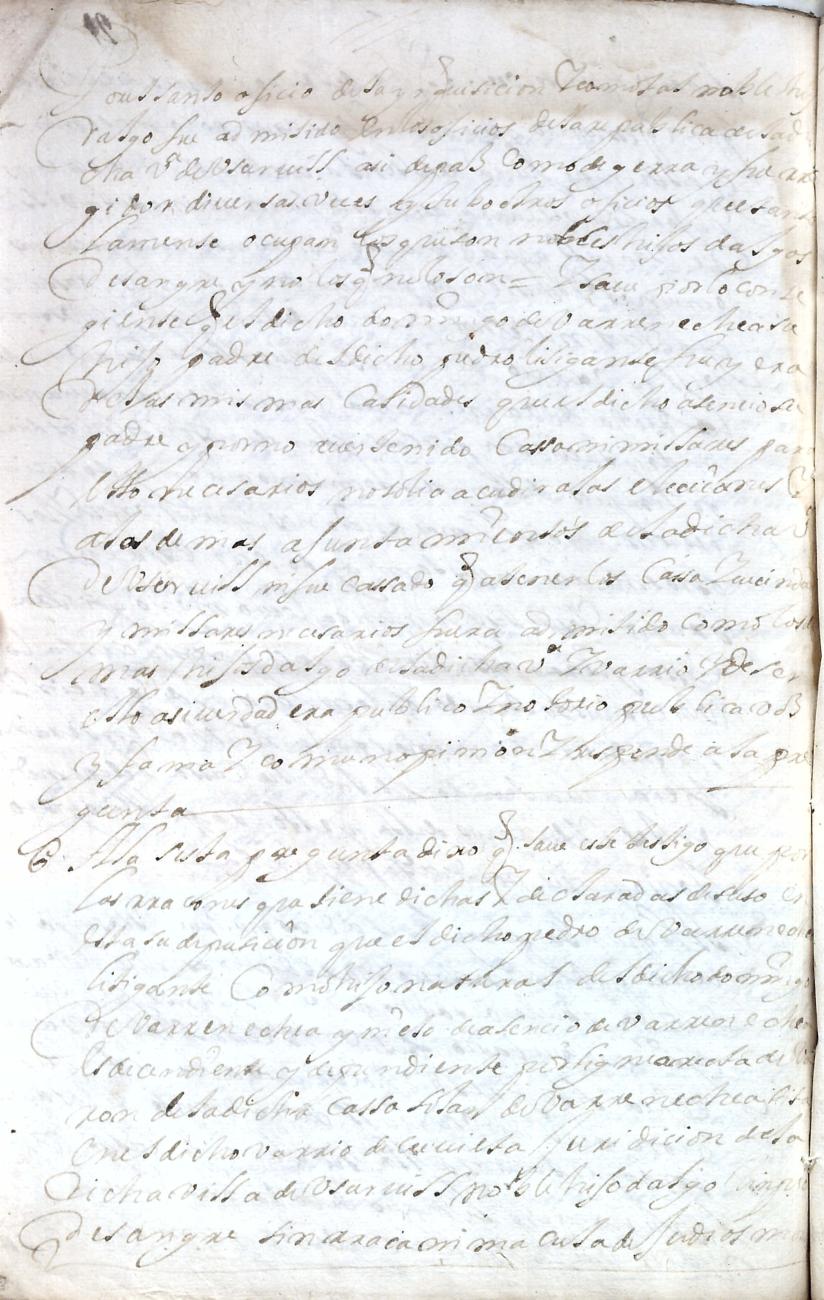 por el santo oficio de la ynquisicion Y como tal noble hij
dalgo fue admitido en los oficios de la republica de la di
cha va de Vsurvill asi de paz como de gerra y fue rre
gidor diversas veces y tubo otros oficios que sola
lamente ocupan los que son nobles hijos dalgos
de sangre y no los q no lo son = Y save por lo consi
giente q el dicho domingo de varrenechea su
hijo padre del dicho pedro litigante fue y era
de las mismas calidades que el dicho asencio su
padre y por no aver tenido cassa ni millares para
ello necesarios no solia acudir a las eleciones
a las demas ajuntamientos de la dicha va
de Vsurvill ni fue cassado q a tener los cassa Y vecinda
y millares necesarios fuera admitido como los
mas hijosdalgo de la dicha va Y varrio Y de ser
ello asi verdad era publico Y notorio publica voz
y fama Y comun opinion Y responde a la pre
gunta
6 A la sesta pregunta dixo q save este testigo que por
las rraçones que tiene dichas Y declaradas de suso en
esta su deposicion que el dicho pedro de varrenechea
litigante como hijo natural del dicho domingo
de varrenechea y nieto de asencio de varrenechea
es decendiente y dependiente por linea recta de va
ron de la dicha cassa solar de varrenechea sita
en el dicho varrio de çuvieta juridicion de la
dicha villa de Vsurvill noble hijodalgo limpio
de sangre sin rraça ni macula de judios mo